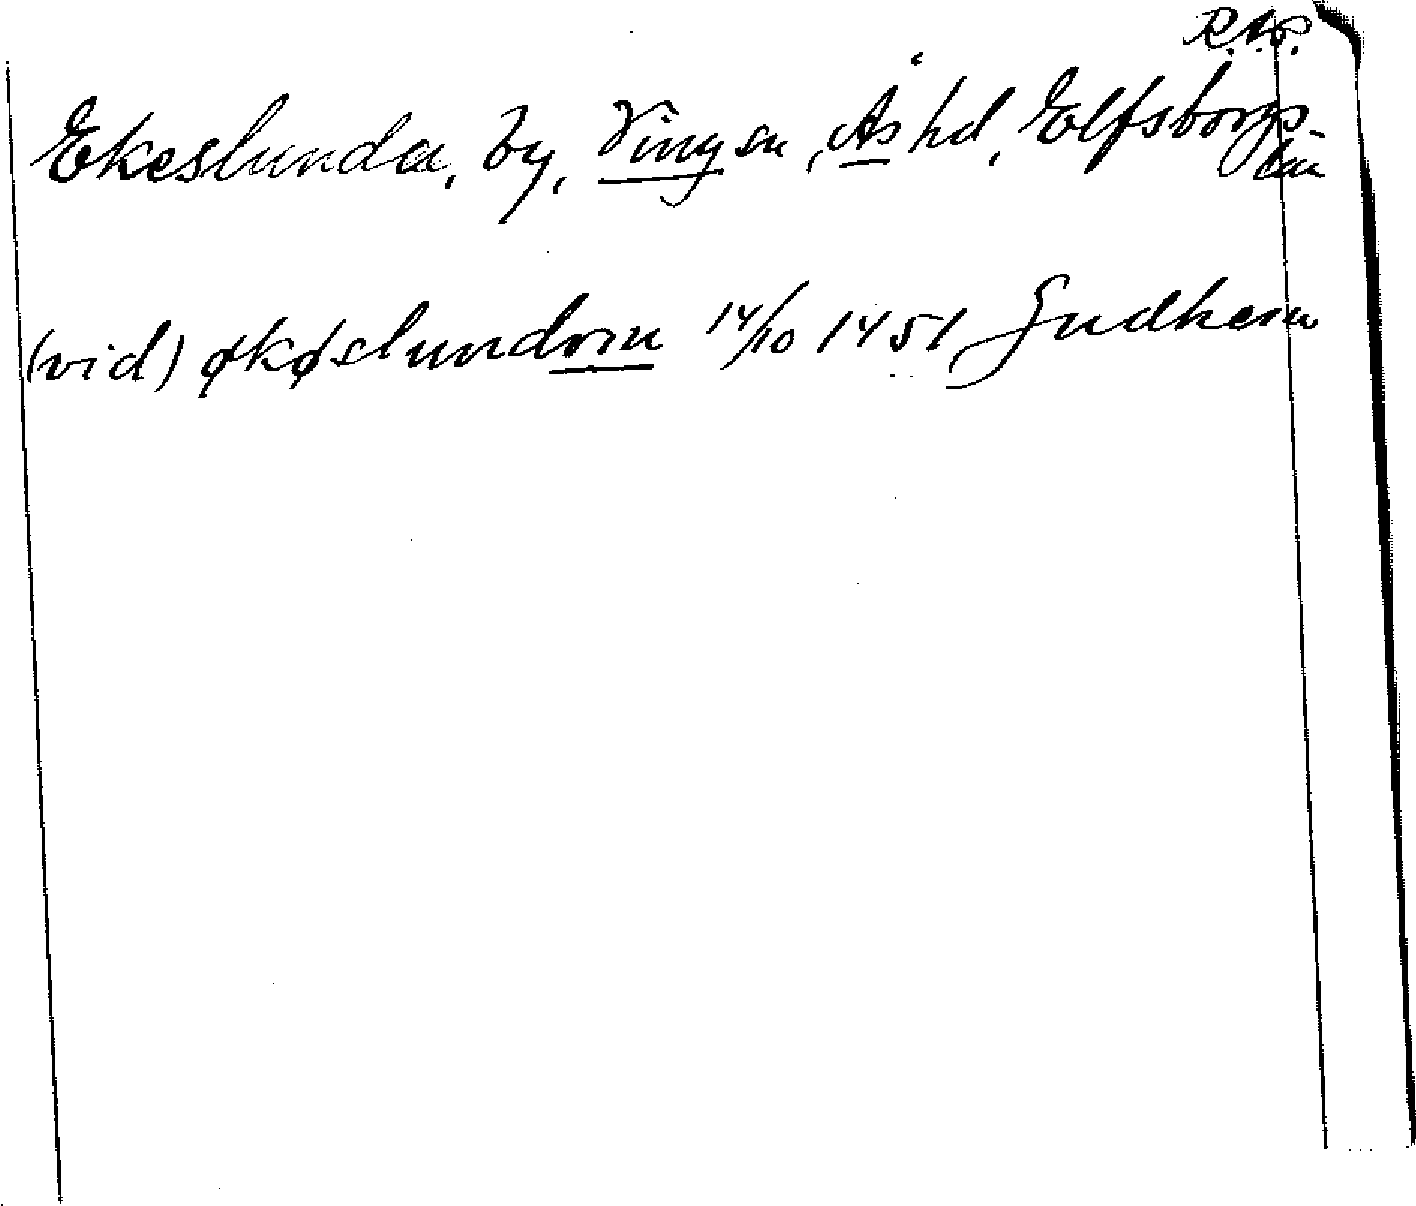 R.A.P.
Ekeslunda, by, Vings sn, Ås hd, Elfsborgs-
län
(vid) økøslundom 14/10 1451 Gudhem